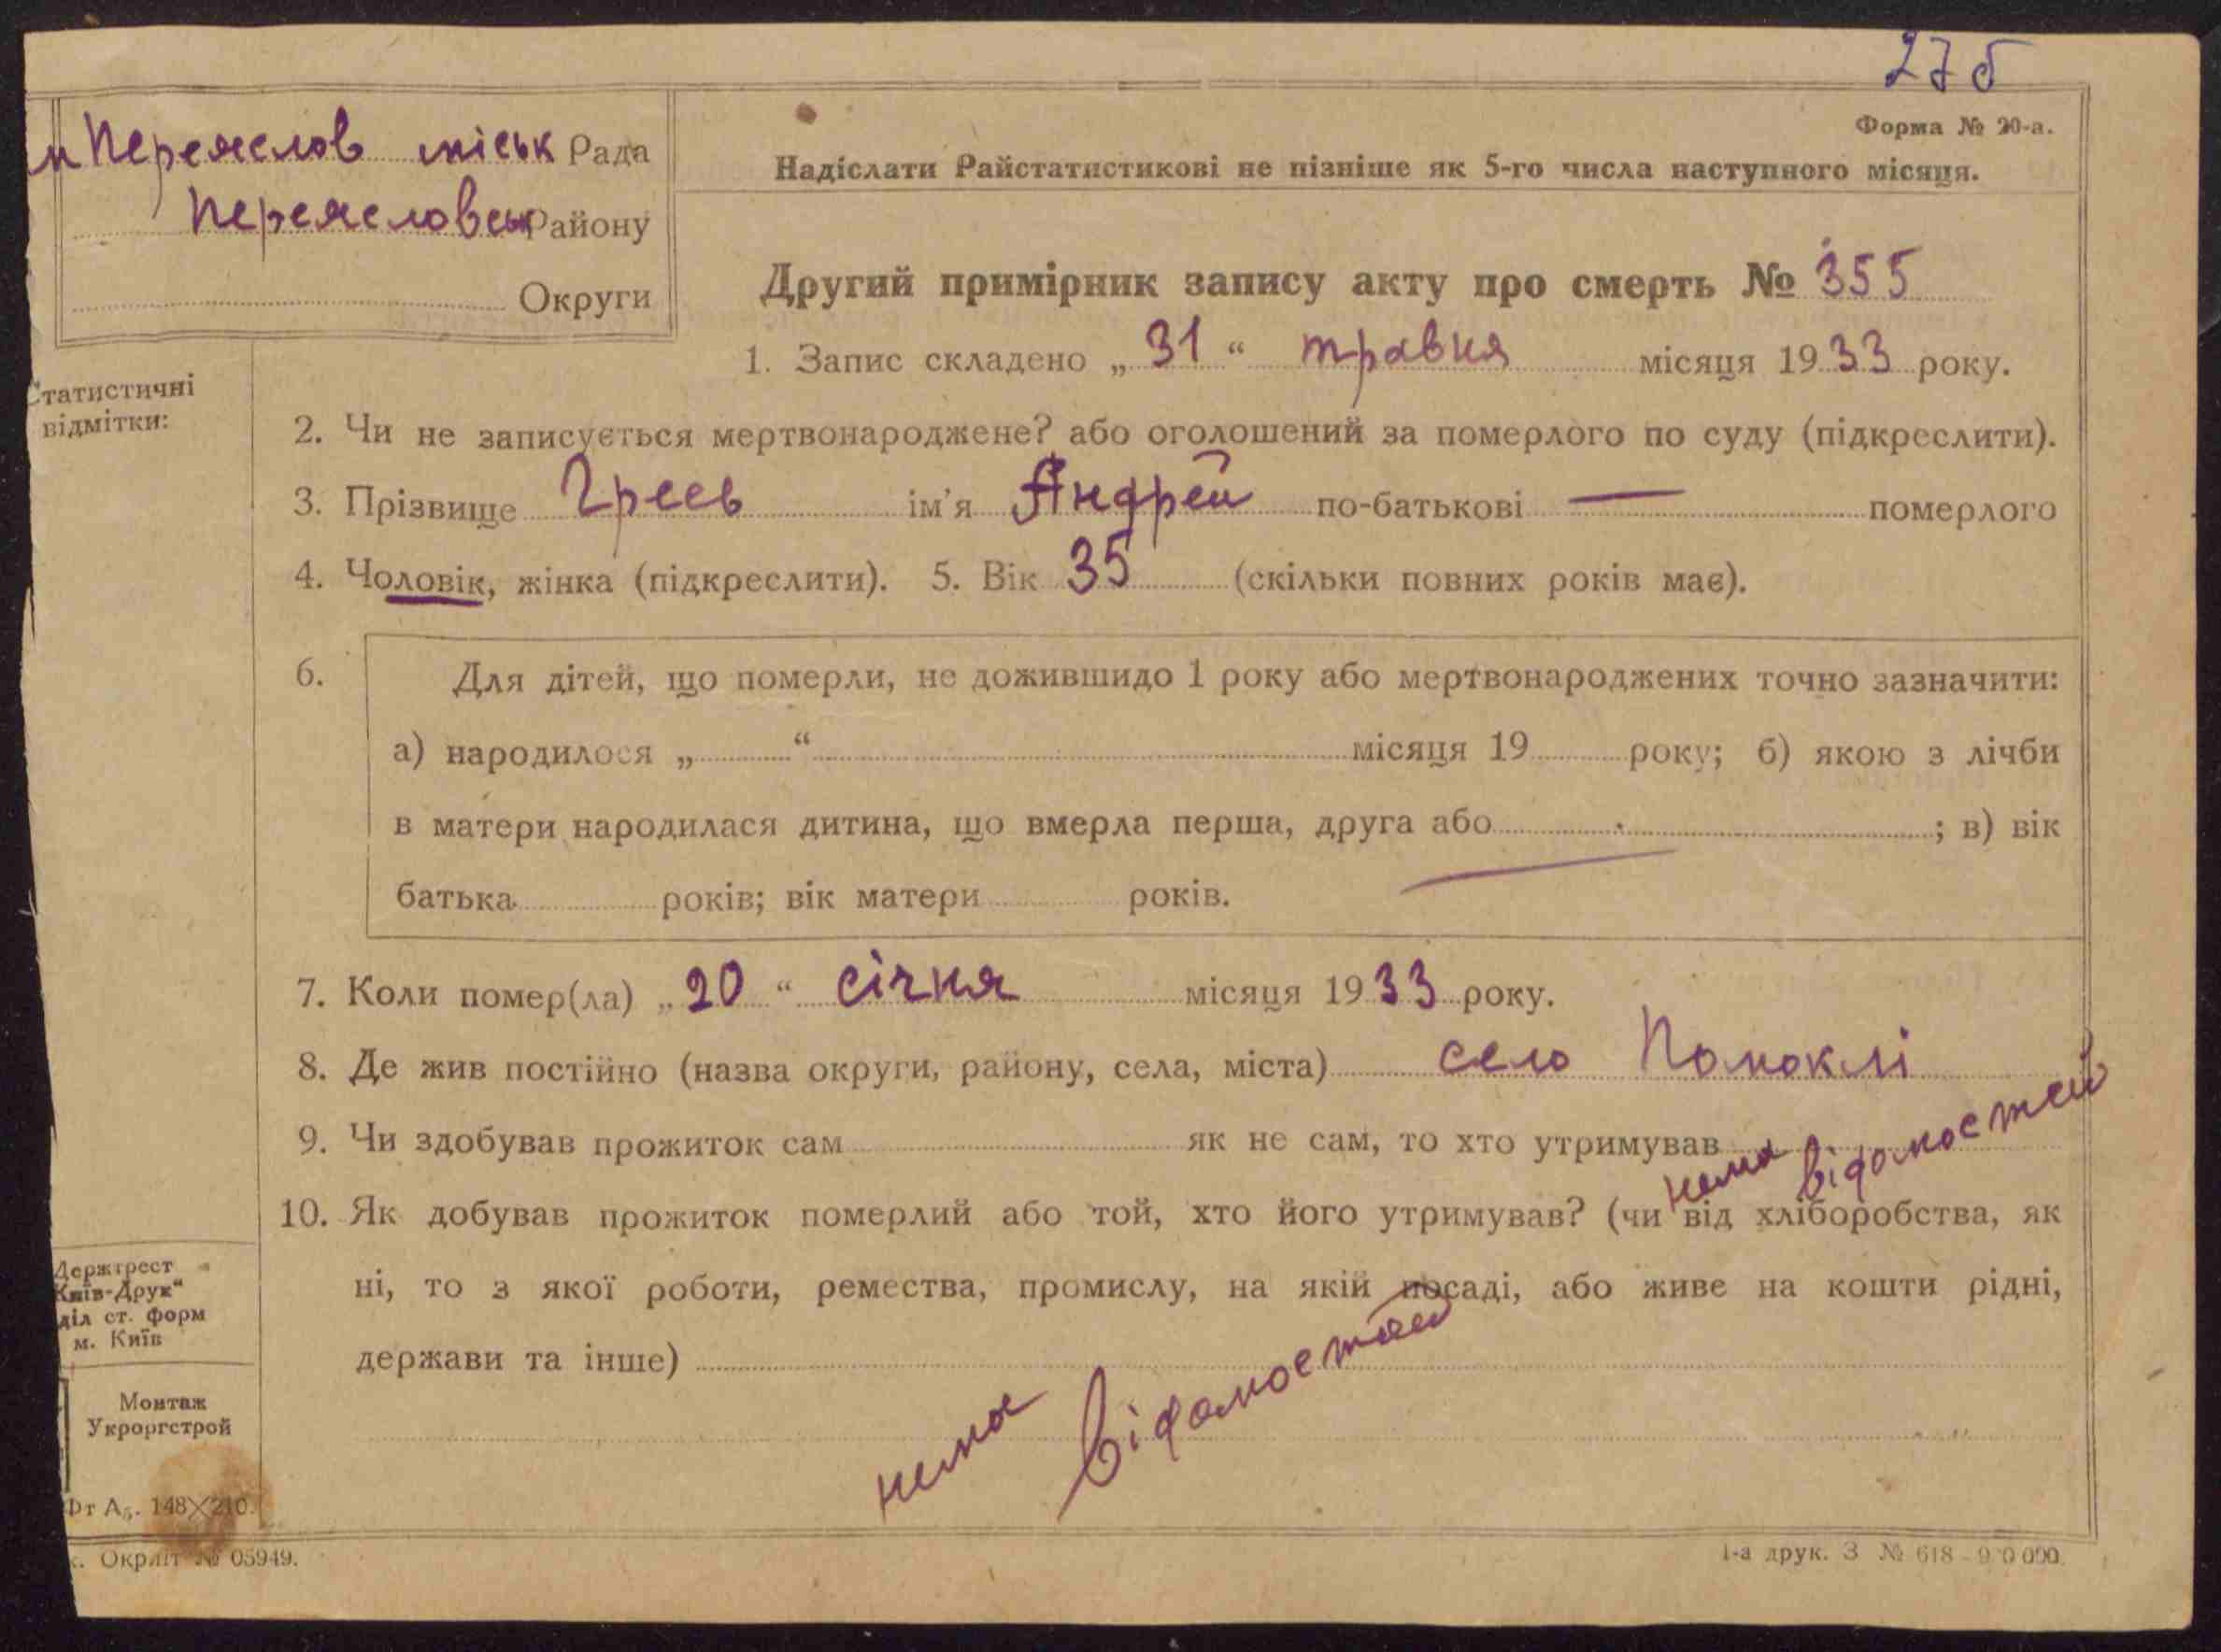 275
м Переяслов міськ Рада
Переясловськ Району
Округи
Форма № 20-а.
Надіслати Райстатистикові не пізніше як 5-го числа наступного місяця.
Другий примірник запису акту про смерть № 355
1. Запис складено „31“ травня місяця 1933 року.
Статистичні
відмітки:
2. Чи не записується мертвонароджене? або оголошений за померлого по суду (підкреслити).
3. Прізвище Греєв ім'я Андрей по-батькові — померлого
4. Чоловік, жінка (підкреслити). 5. Вік 35 (скільки повних років має).
6. Для дітей, що померли, не дожившидо 1 року або мертвонароджених точно зазначити:
а) народилося „ “ місяця 19 року; б) якою з лічби
в матери народилася дитина, що вмерла перша, друга або ; в) вік
батька років; вік матери років.
7. Коли помер(ла) „20“ січня місяця 1933 року.
8. Де жив постійно (назва округи, району, села, міста) село Помоклі
9. Чи здобував прожиток сам як не сам, то хто утримував нема відомостей
10. Як добував прожиток померлий або той, хто його утримував? (чи від хліборобства, як
ні, то з якої роботи, ремества, промислу, на якій посаді, або живе на кошти рідні,
держави та інше)
нема відомостей
Держтрест
Київ-Друк“
діл ст. форм
м. Київ
Монтаж
Укроргстрой
Фт А₅. 148×210.
Окрліт № 05949.
1-а друк. З № 618